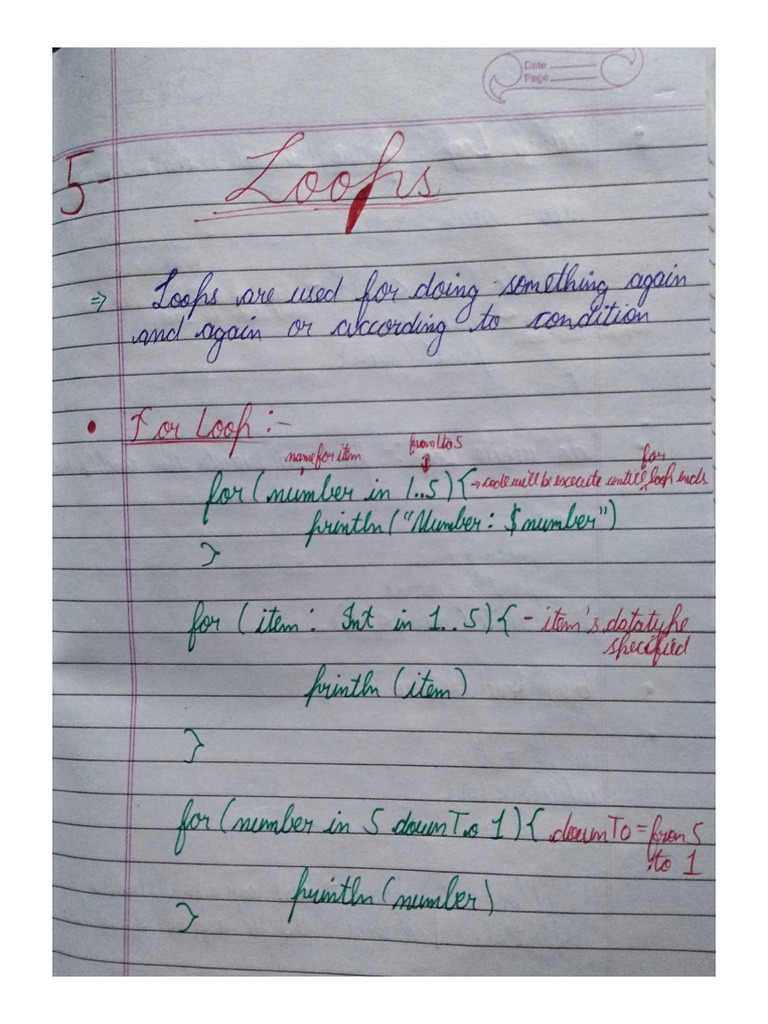 Date
Page
5- Loops
⇒ Loops are used for doing something again
and again or according to condition
• For Loop :-
name for item from 1 to 5 for
for (number in 1..5) { → code will be execute until loop ends
println("Number: $number")
}
for (item : Int in 1..5) { - item's datatype
specified
println (item)
}
for (number in 5 downTo 1) { downTo = from 5
to 1
println (number)
}